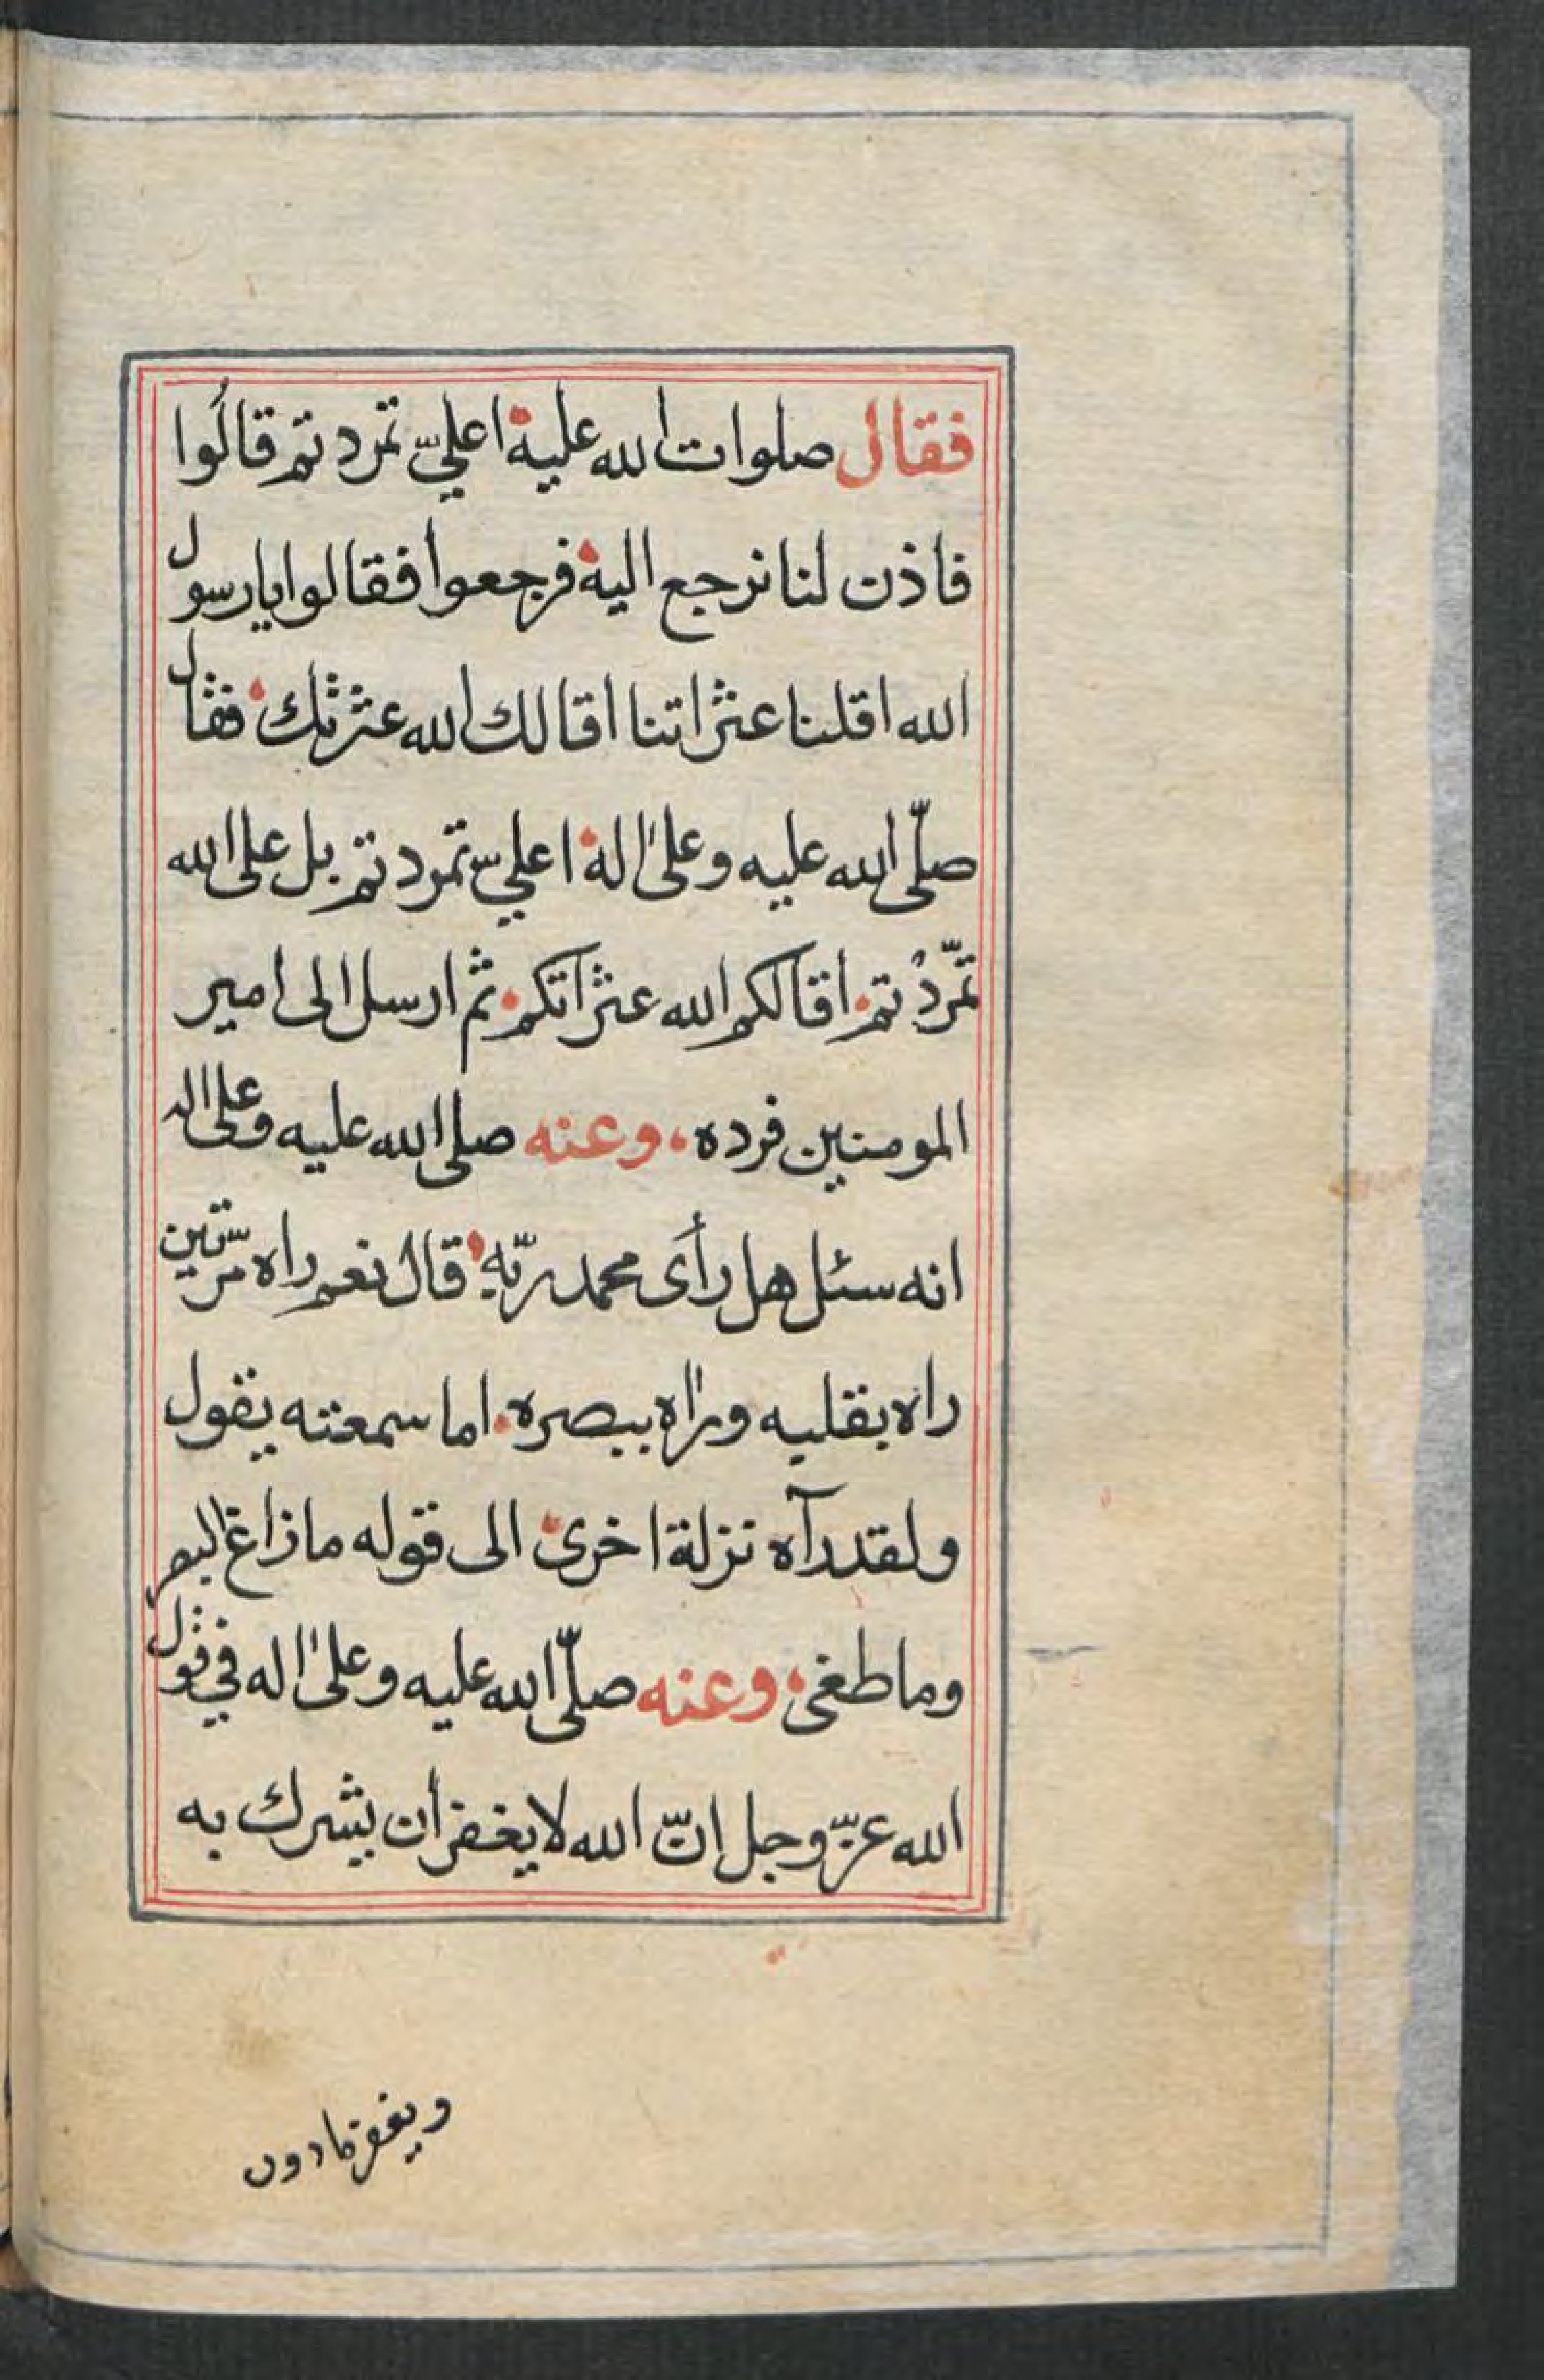 فقال صلوات الله عليه اعليّ تمرد تم قالُوا
فاذن لنا نرجع اليه فرجعوا فقالوا يا رسول
الله اقلنا عثراتنا اقالك الله عثرتك فقال
صلّى الله عليه وعلى اله اعلي تمرد تم بل على الله
تمّردْ تم اقالكم الله عثراتكم ثم ارسل الى امير
المومنين فرده وعنه صلى الله عليه وعلى اله
انه سئل هل رأى محمد ربّه قال نعم راه مرّتين
راه بقلبه وراه ببصره اما سمعته يقول
ولقد رآه نزلة اخرى الى قوله ما زاغ البصر
وما طغى وعنه صلّى الله عليه وعلى اله في قول
الله عزّ وجل إنّ الله لا يغفر أن يشرك به
ويغفر ما دون